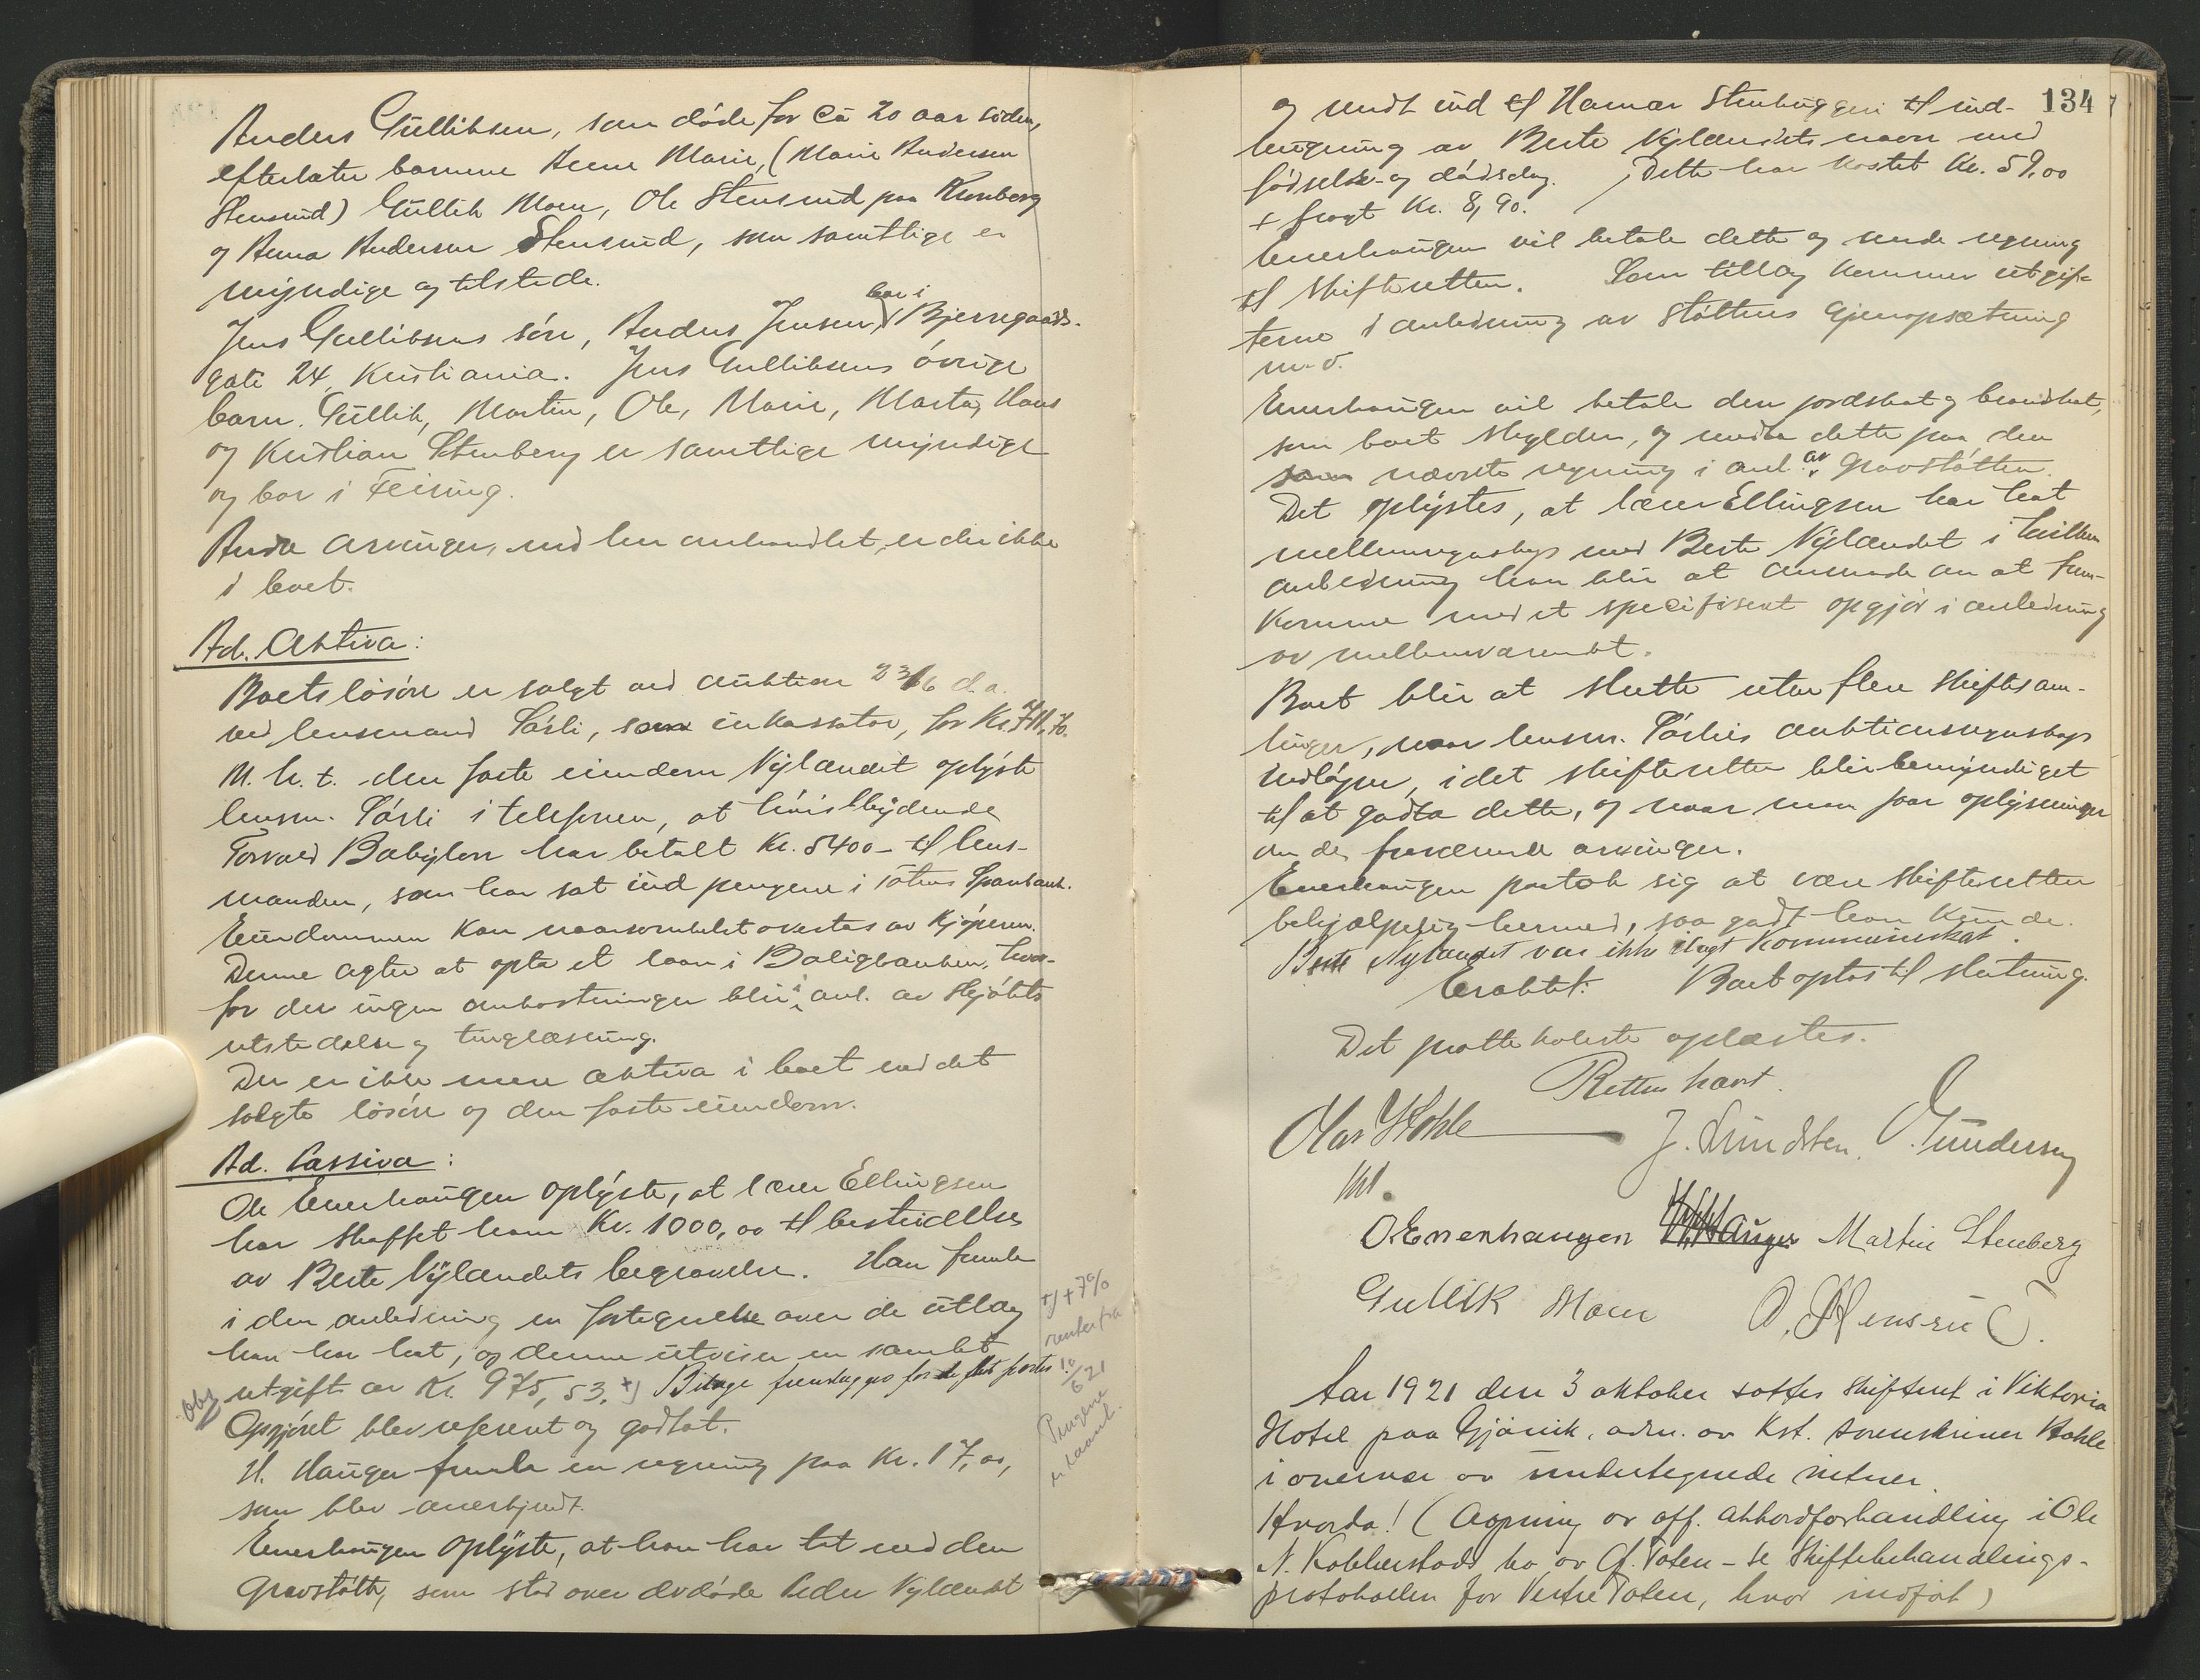 Anders Gullibsen, som døde for ca 20 aar siden,
efterlater barnene Anne Marie, (Marie Andersen
Stensrud) Gullik Moen, Ole Stensrud paa Kronberg
og Anna Andersen Stensrud, som samtlige er
myndige og tilstede.
Jens Gullibsens søn, Anders Jensen, bor i Bjerregaards-
gate 24, Kristiania. Jens Gullibsens øvrige
barn. Gullik, Martin, Ole, Marie, Marta, Hans
og Kristian Stenberg er samtlige myndige
og bor i Feiring.
Andre arvinger, end her anhandlet, er der ikke
i boet.
Ad. Aktiva:
Boets løsøre er solgt ved auktion 23/6 d.a.
ved lensmand Sørli, som inkassator, for Kr.
M.h.t. den faste eiendom Nylændet oplyste
lensm. Sørli i telefonen, at høistbydende
Torvald Babylon har betalt Kr. 5400- til lens-
manden, som har sat ind pengene i Totens Sparebank.
Eiendommen kan naarsomhelst overtas av kjøperen.
Denne agter at opta et laan i Boligbanken, hvor-
for der ingen omkostninger blir i anl. av skjøtets
utstedelse og tinglæsning.
Der er ikke mere aktiva i boet end det
solgte løsøre og den faste eiendom.
Ad. Passiva:
Ole Enerhaugen oplyste, at lærer Ellingsen
har skaffet ham Kr. 1000,00 til bestridelse
av Berte Nylændets begravelse. Han fremla
i den anledning en fortegnelse over de utlæg
han har hat, og denne utviser en samlet
utgift av Kr. 975,53. +) Bilage fremlagges for de fleste poster.
+) + 7%
renter fra
10/6 21
Pengene
er laant.
Obs
Opgjøret blev referert og godtat.
H. Hauger fremla en regning paa Kr. 17,00,
som blev anerkjendt.
Enerhaugen oplyste, at han har tat ned den
gravstøtte, som stod over avdøde Peder Nylændet
134
og sendt ind til Hamar Stenhuggeri til ind-
hugning av Berte Nylændets navn med
fødsels- og dødsdag. Dette har kostet Kr. 59,00
+ fragt Kr. 8,90.
Enerhaugen vil betale dette og sende regning
til skifteretten. Som tillæg kommer utgif-
terne i anledning av støttens gjenopsætning
m.v.
Enerhaugen vil betale den jordskat og brandskat,
som boet skylder, og medta dette paa den
som nævnte regning i anl. av gravstøtten.
Det oplystes, at lærer Ellingsen har hat
mellemregnskap med Berte Nylændet i hvilken
anledning han blir at anmode om at frem-
komme med et specifisert opgjør i anledning
av mellemværendet.
Boet blir at slutte uten flere skiftesam-
linger, naar lensm. Sørlies auktionsregnskap
indløper, idet skifteretten blir bemyndiget
til at godta dette, og naar man faar oplysninger
om de fraværende arvinger.
Enerhaugen paatok sig at være skifteretten
behjælpelig hermed, saa godt han kunde.
Berte Nylændet var ikke ilagt kommuneskat.
Eraktet: Boet optas til slutning.
Det protokollerte oplæstes.
Retten hævet.
Olav Stohle
kst.
J. Lundsten. O. Gundersen
O Enerhaugen H. Hauger Martin Stenberg
Gullik Moen
Aar 1921 den 3 oktober sattes skifteret i Viktoria
Hotel paa Gjøvik, adm. av Kst. sorenskriver Stohle
i overvær av undertegnede vitner.
Hvorda! (Aapning av off. akkordforhandling i Ole
N. Kobberstads bo av Ø. Toten - se Skiftebehandlings-
protokollen for Vestre Toten, hvor indført)